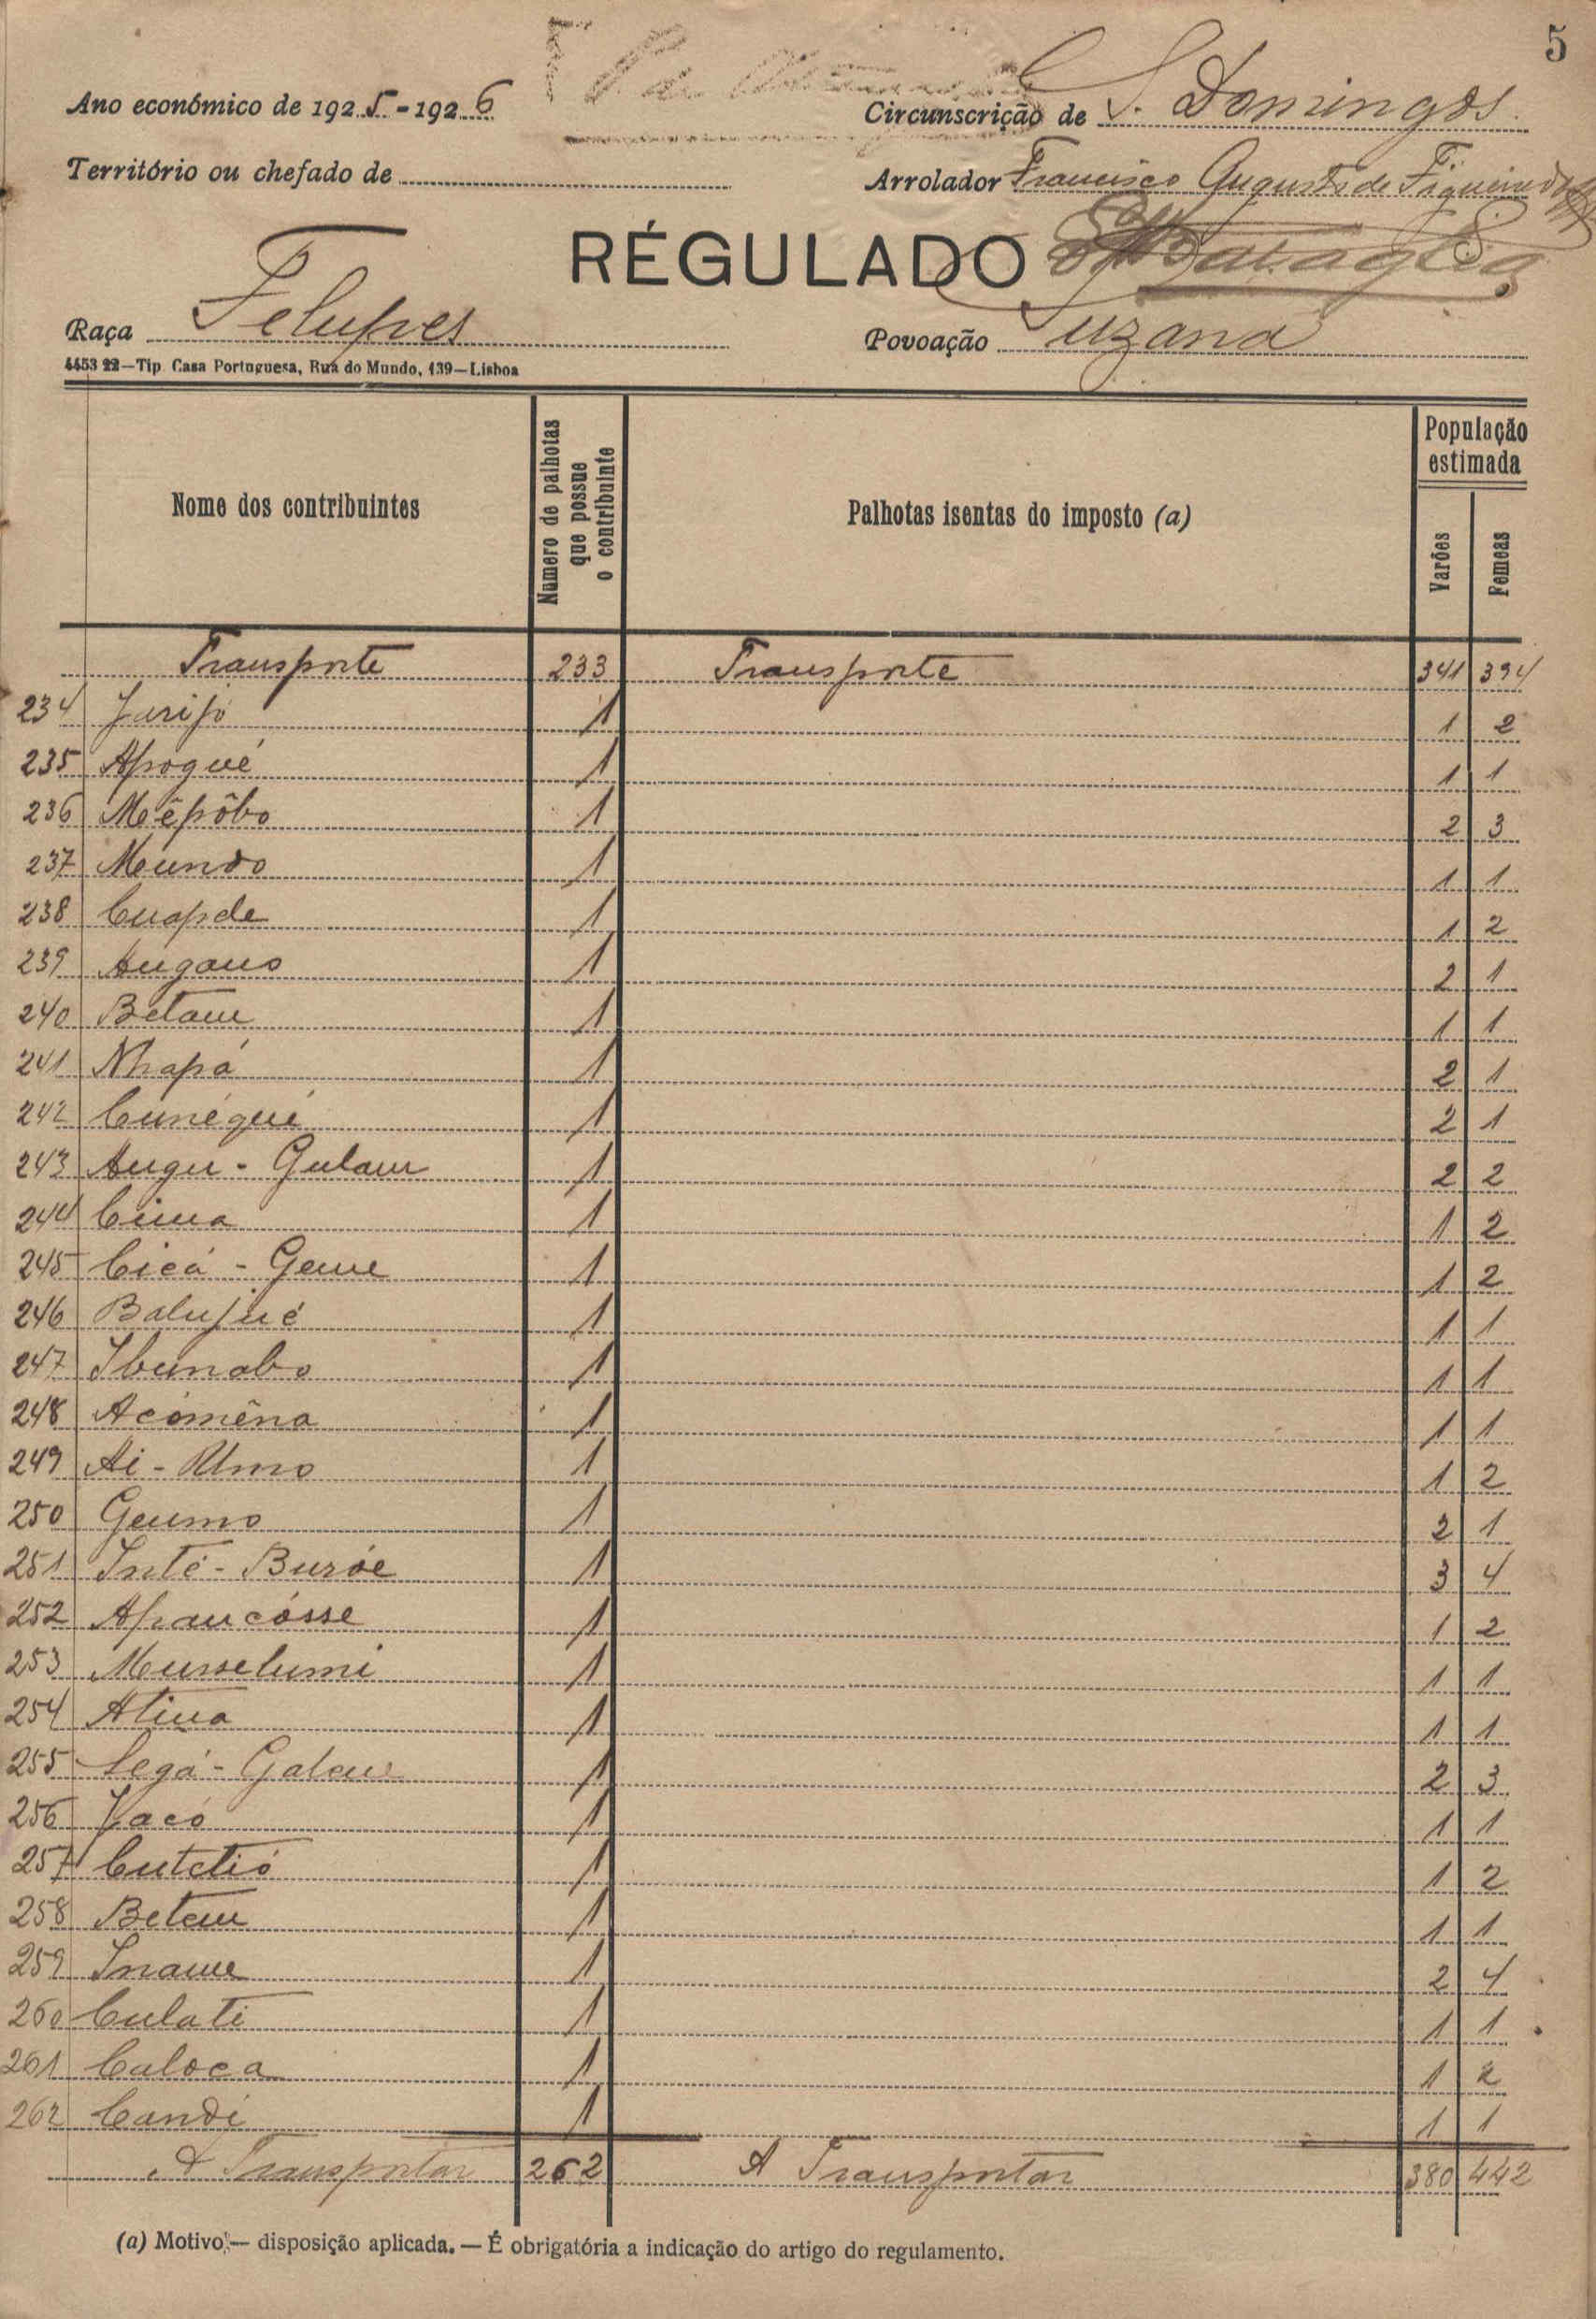 5
Ano económico de 1925-1926
Circunscrição de S. Domingos.
Território ou chefado de
Arrolador Francisco Augusto de Figueiredo
RÉGULADO
Raça Felupes
Povoação Suzana
4453 22—Tip. Casa Portuguesa, Rua do Mundo, 139—Lisboa
Nome dos contribuintes
Número de palhotas que possue o contribuinte
Palhotas isentas do imposto (a)
População estimada
Varões
Femeas
Transporte 233 Transporte 341 394
234 Jarijó 1 1 2
235 Apogué 1 1 1
236 Mêpôbo 1 2 3
237 Mundo 1 1 1
238 Cuapde 1 1 2
239 Augaus 1 2 1
240 Betam 1 1 1
241 Nhapá 1 2 1
242 Cunéqué 1 2 1
243 Augu - Gulam 1 2 2
244 Cima 1 1 2
245 Cicá - Geme 1 1 2
246 Balujué 1 1 1
247 Ibunabo 1 1 1
248 Acómêna 1 1 1
249 Ai - Umo 1 1 2
250 Geumo 1 2 1
251 Inté - Buróe 1 3 4
252 Apaucósse 1 1 2
253 Musselumi 1 1 1
254 Atina 1 1 1
255 Segá - Galem 1 2 3
256 Jacó 1 1 1
257 Cutetió 1 1 2
258 Betem 1 1 1
259 Iname 1 2 4
260 Culati 1 1 1
261 Caloca 1 1 2
262 Candi 1 1 1
A Transportar 262 A Transportar 380 442
(a) Motivo — disposição aplicada. — É obrigatória a indicação do artigo do regulamento.